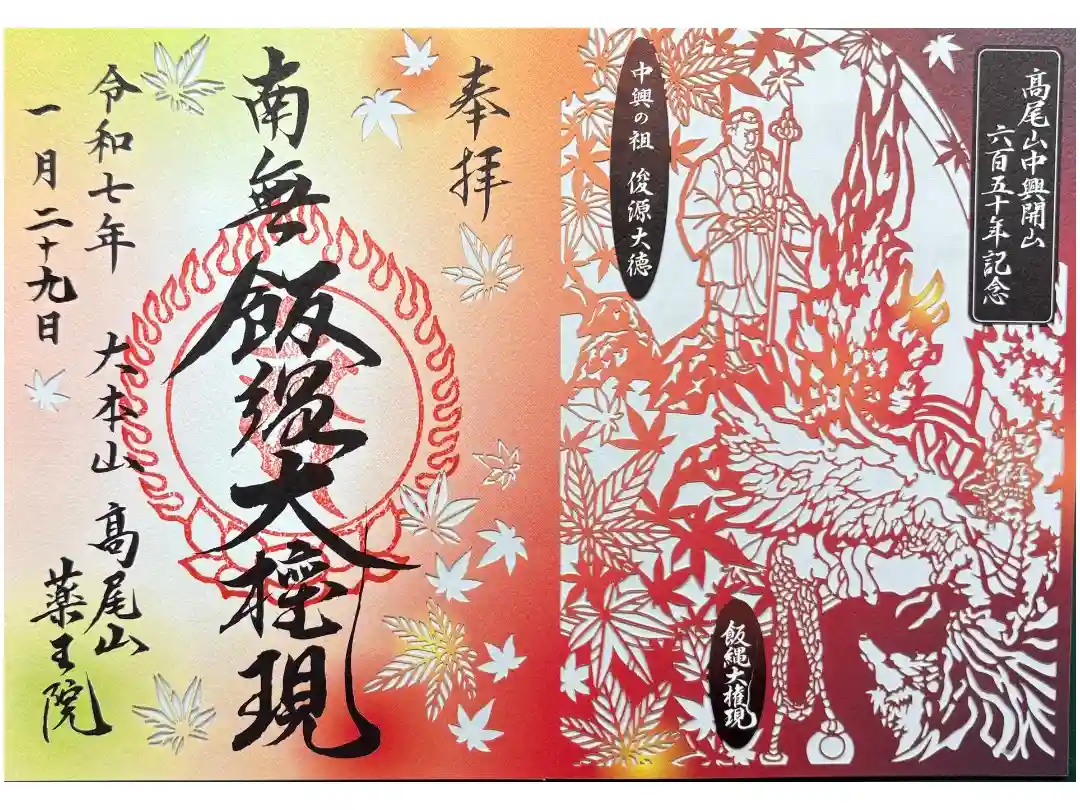 高尾山中興開山
六百五十年記念
中興の祖 俊源大徳
飯縄大権現
奉拝
南無飯縄大権現
令和七年
一月二十九日
大本山 高尾山
薬王院